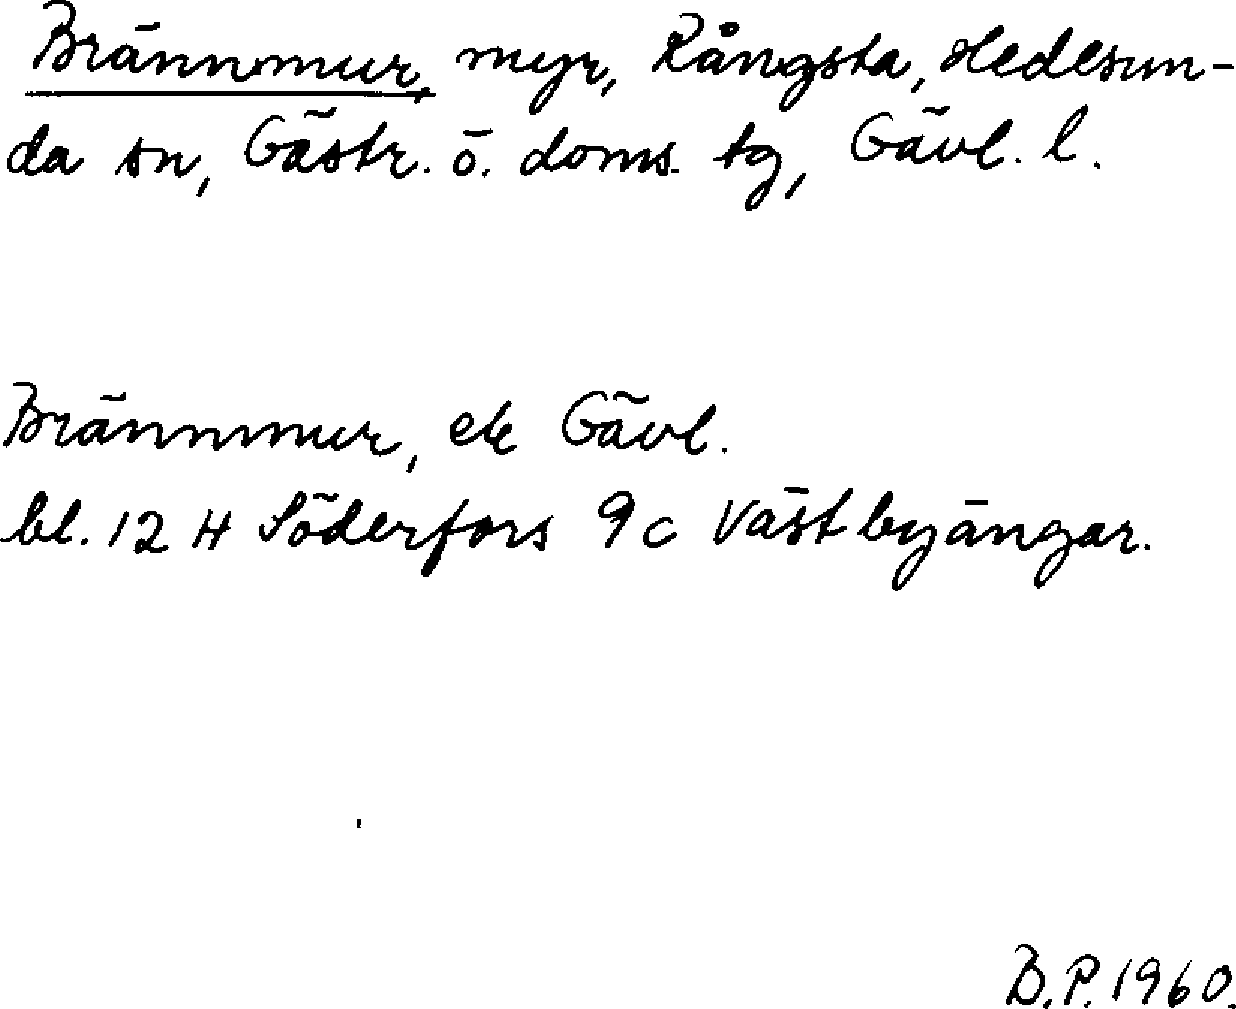 Brännmur, myr, Rångsta, Hedesun-
da sn, Gästr. ö. doms. tg, Gävl. l.
Brännmur, ek Gävl.
bl. 12 H Söderfors 9 c Västbyängar.
B.P. 1960.